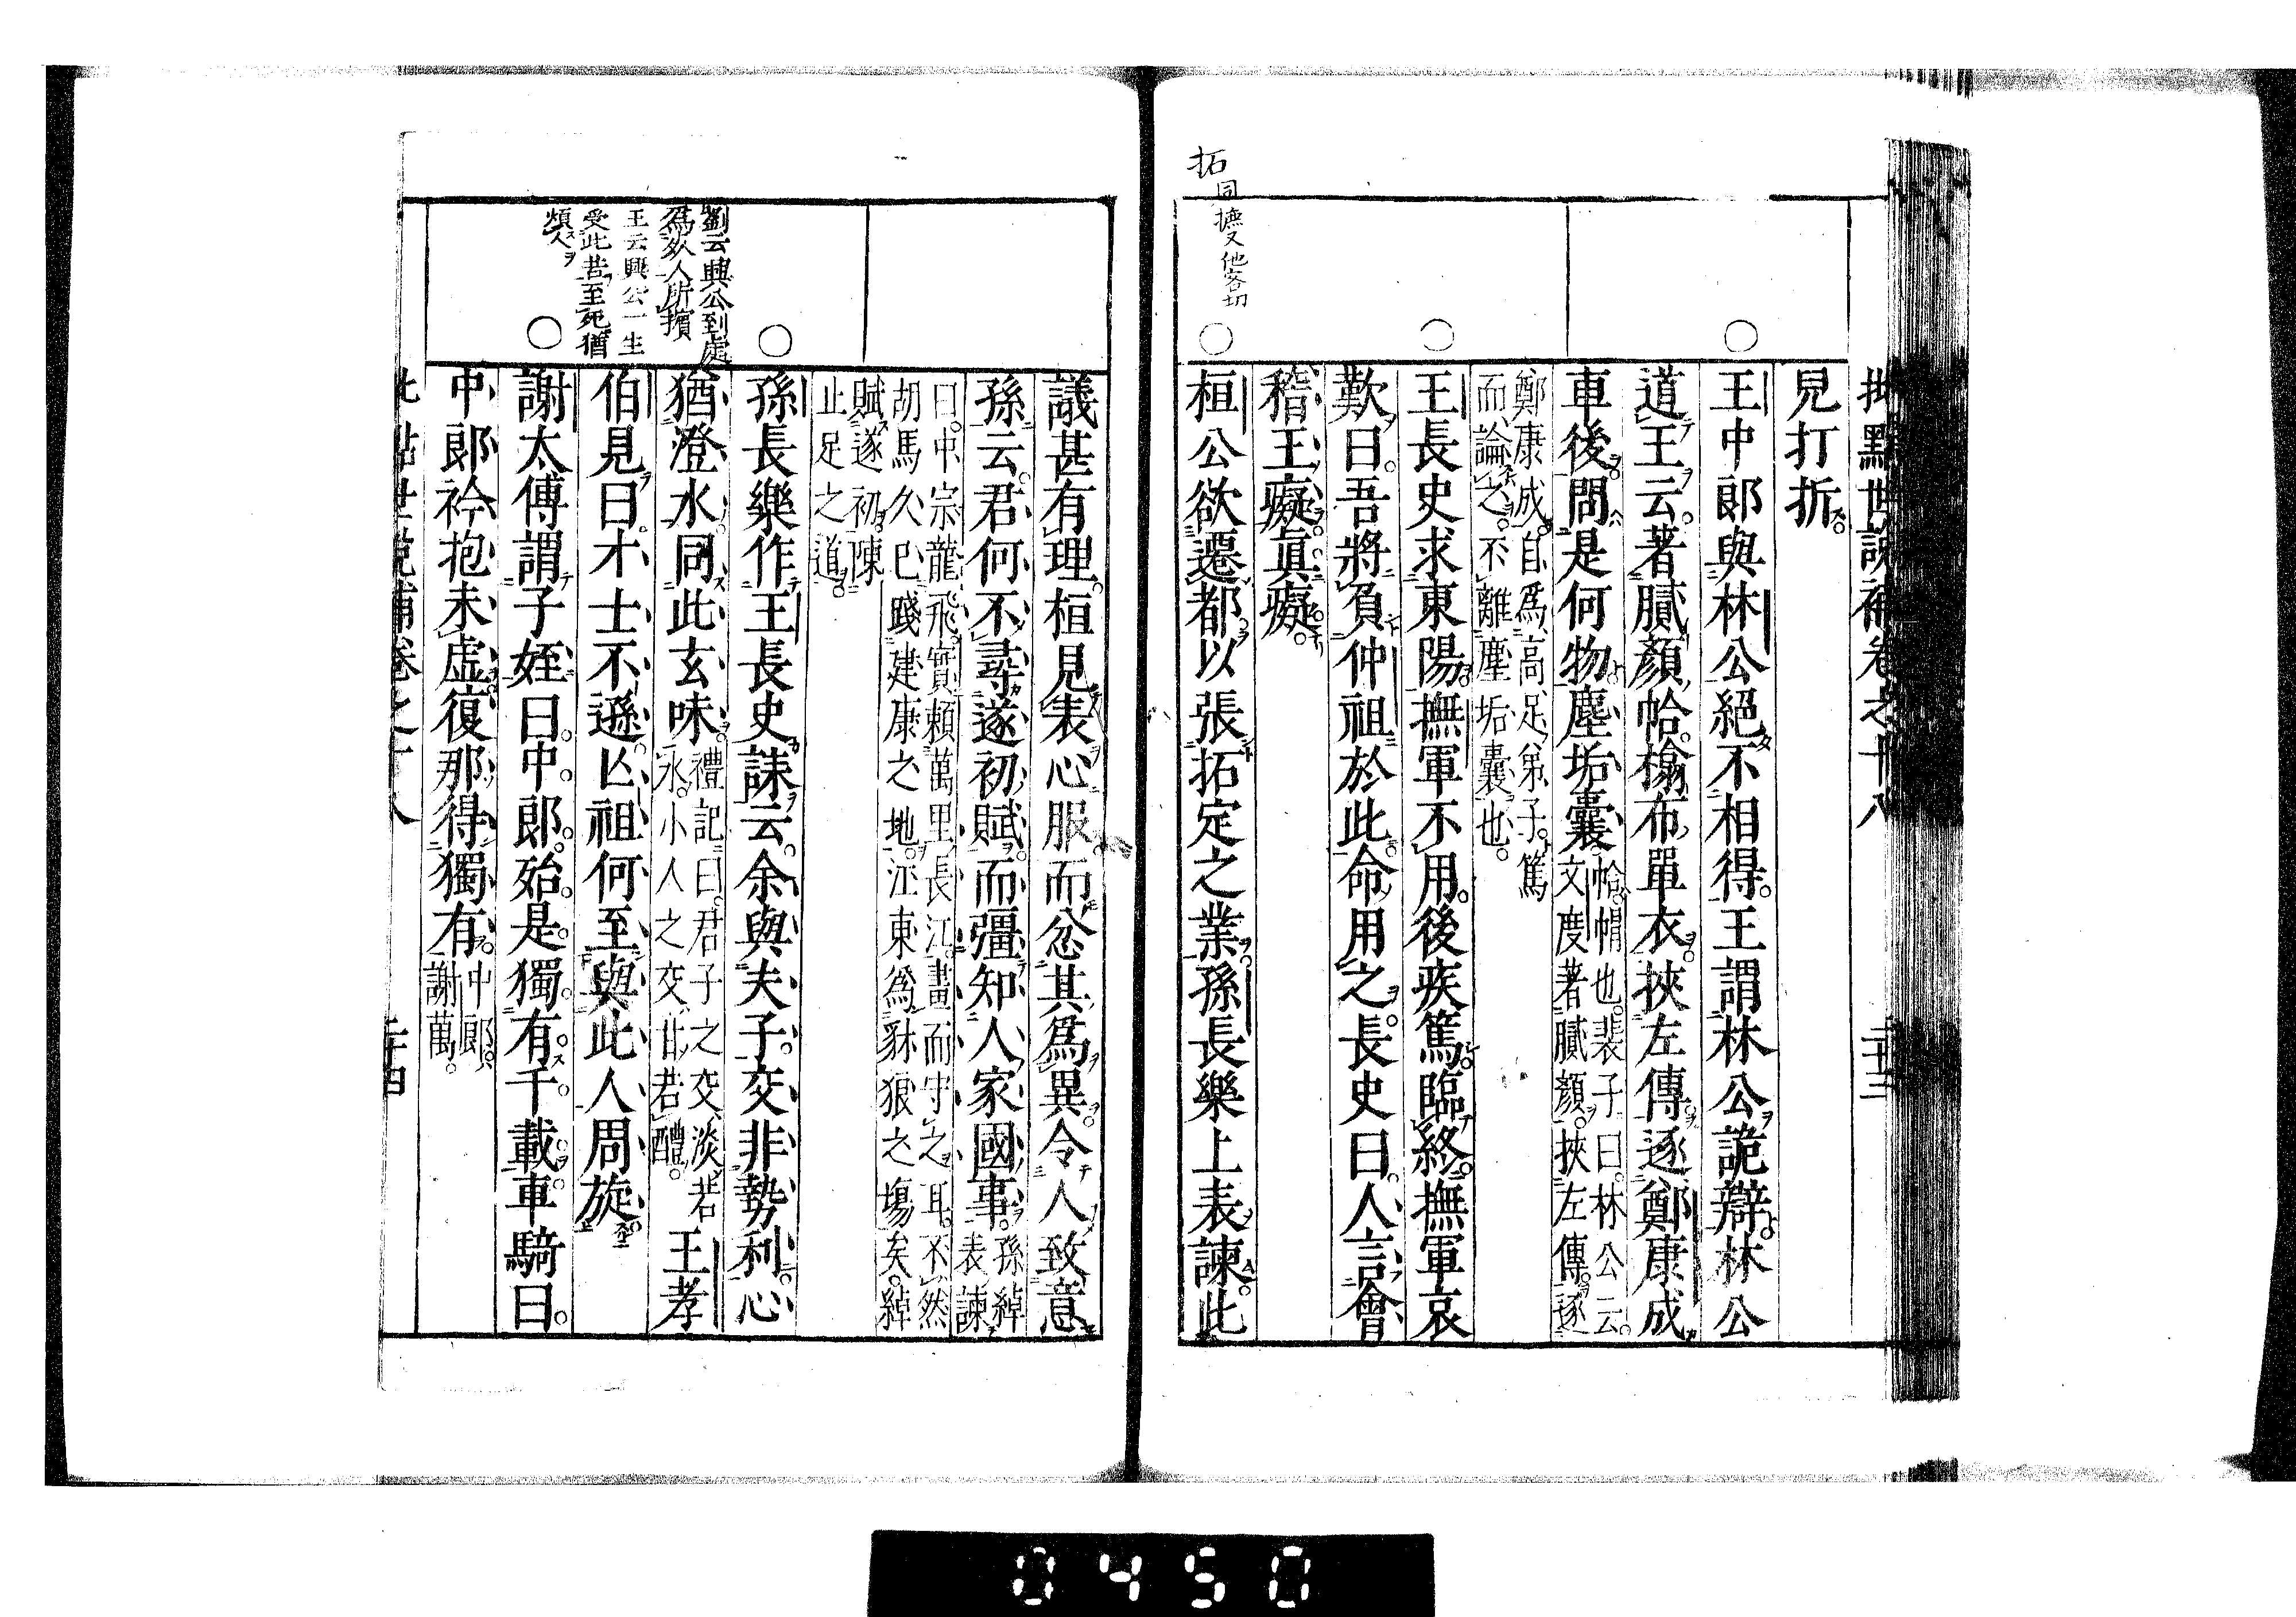 批點世說補卷之十八　二十三
見打折
王中郞與林公絕不相得王謂林公詭辯林公
道王云著膩顏帢㯓布單衣挾左傳逐鄭康成
車後問是何物塵垢囊帢帽也裴子曰林公云
文度著膩顏挾左傳逐
鄭康成自爲高足弟子篤
而論之不離塵垢囊也
王長史求東陽撫軍不用後疾篤臨終撫軍哀
歎曰吾將負仲祖於此命用之長史曰人言會
稽王癡眞癡
拓同摭又他客切
桓公欲遷都以張拓定之業孫長樂上表諫此
議甚有理桓見表心服而忿其爲異令人致意
孫云君何不尋遂初賦而彊知人家國事孫綽
表諫
曰中宗龍飛實賴萬里長江畫而守之耳不然
胡馬久已踐建康之地江東爲豺狼之場矣綽
賦遂初陳
止足之道
劉云興公到處
爲汝人所擯
王云興公一生
受此苦至死猶
煩人
孫長樂作王長史誄云余與夫子交非勢利心
猶澄水同此玄味禮記曰君子之交淡若
水小人之交甘若醴王孝
伯見曰才士不遜亡祖何至與此人周旋
謝太傅謂子姪曰中郞始是獨有千載車騎曰
中郞衿抱未虛復那得獨有中郞
謝萬
世說補卷之十八　二十四
0450